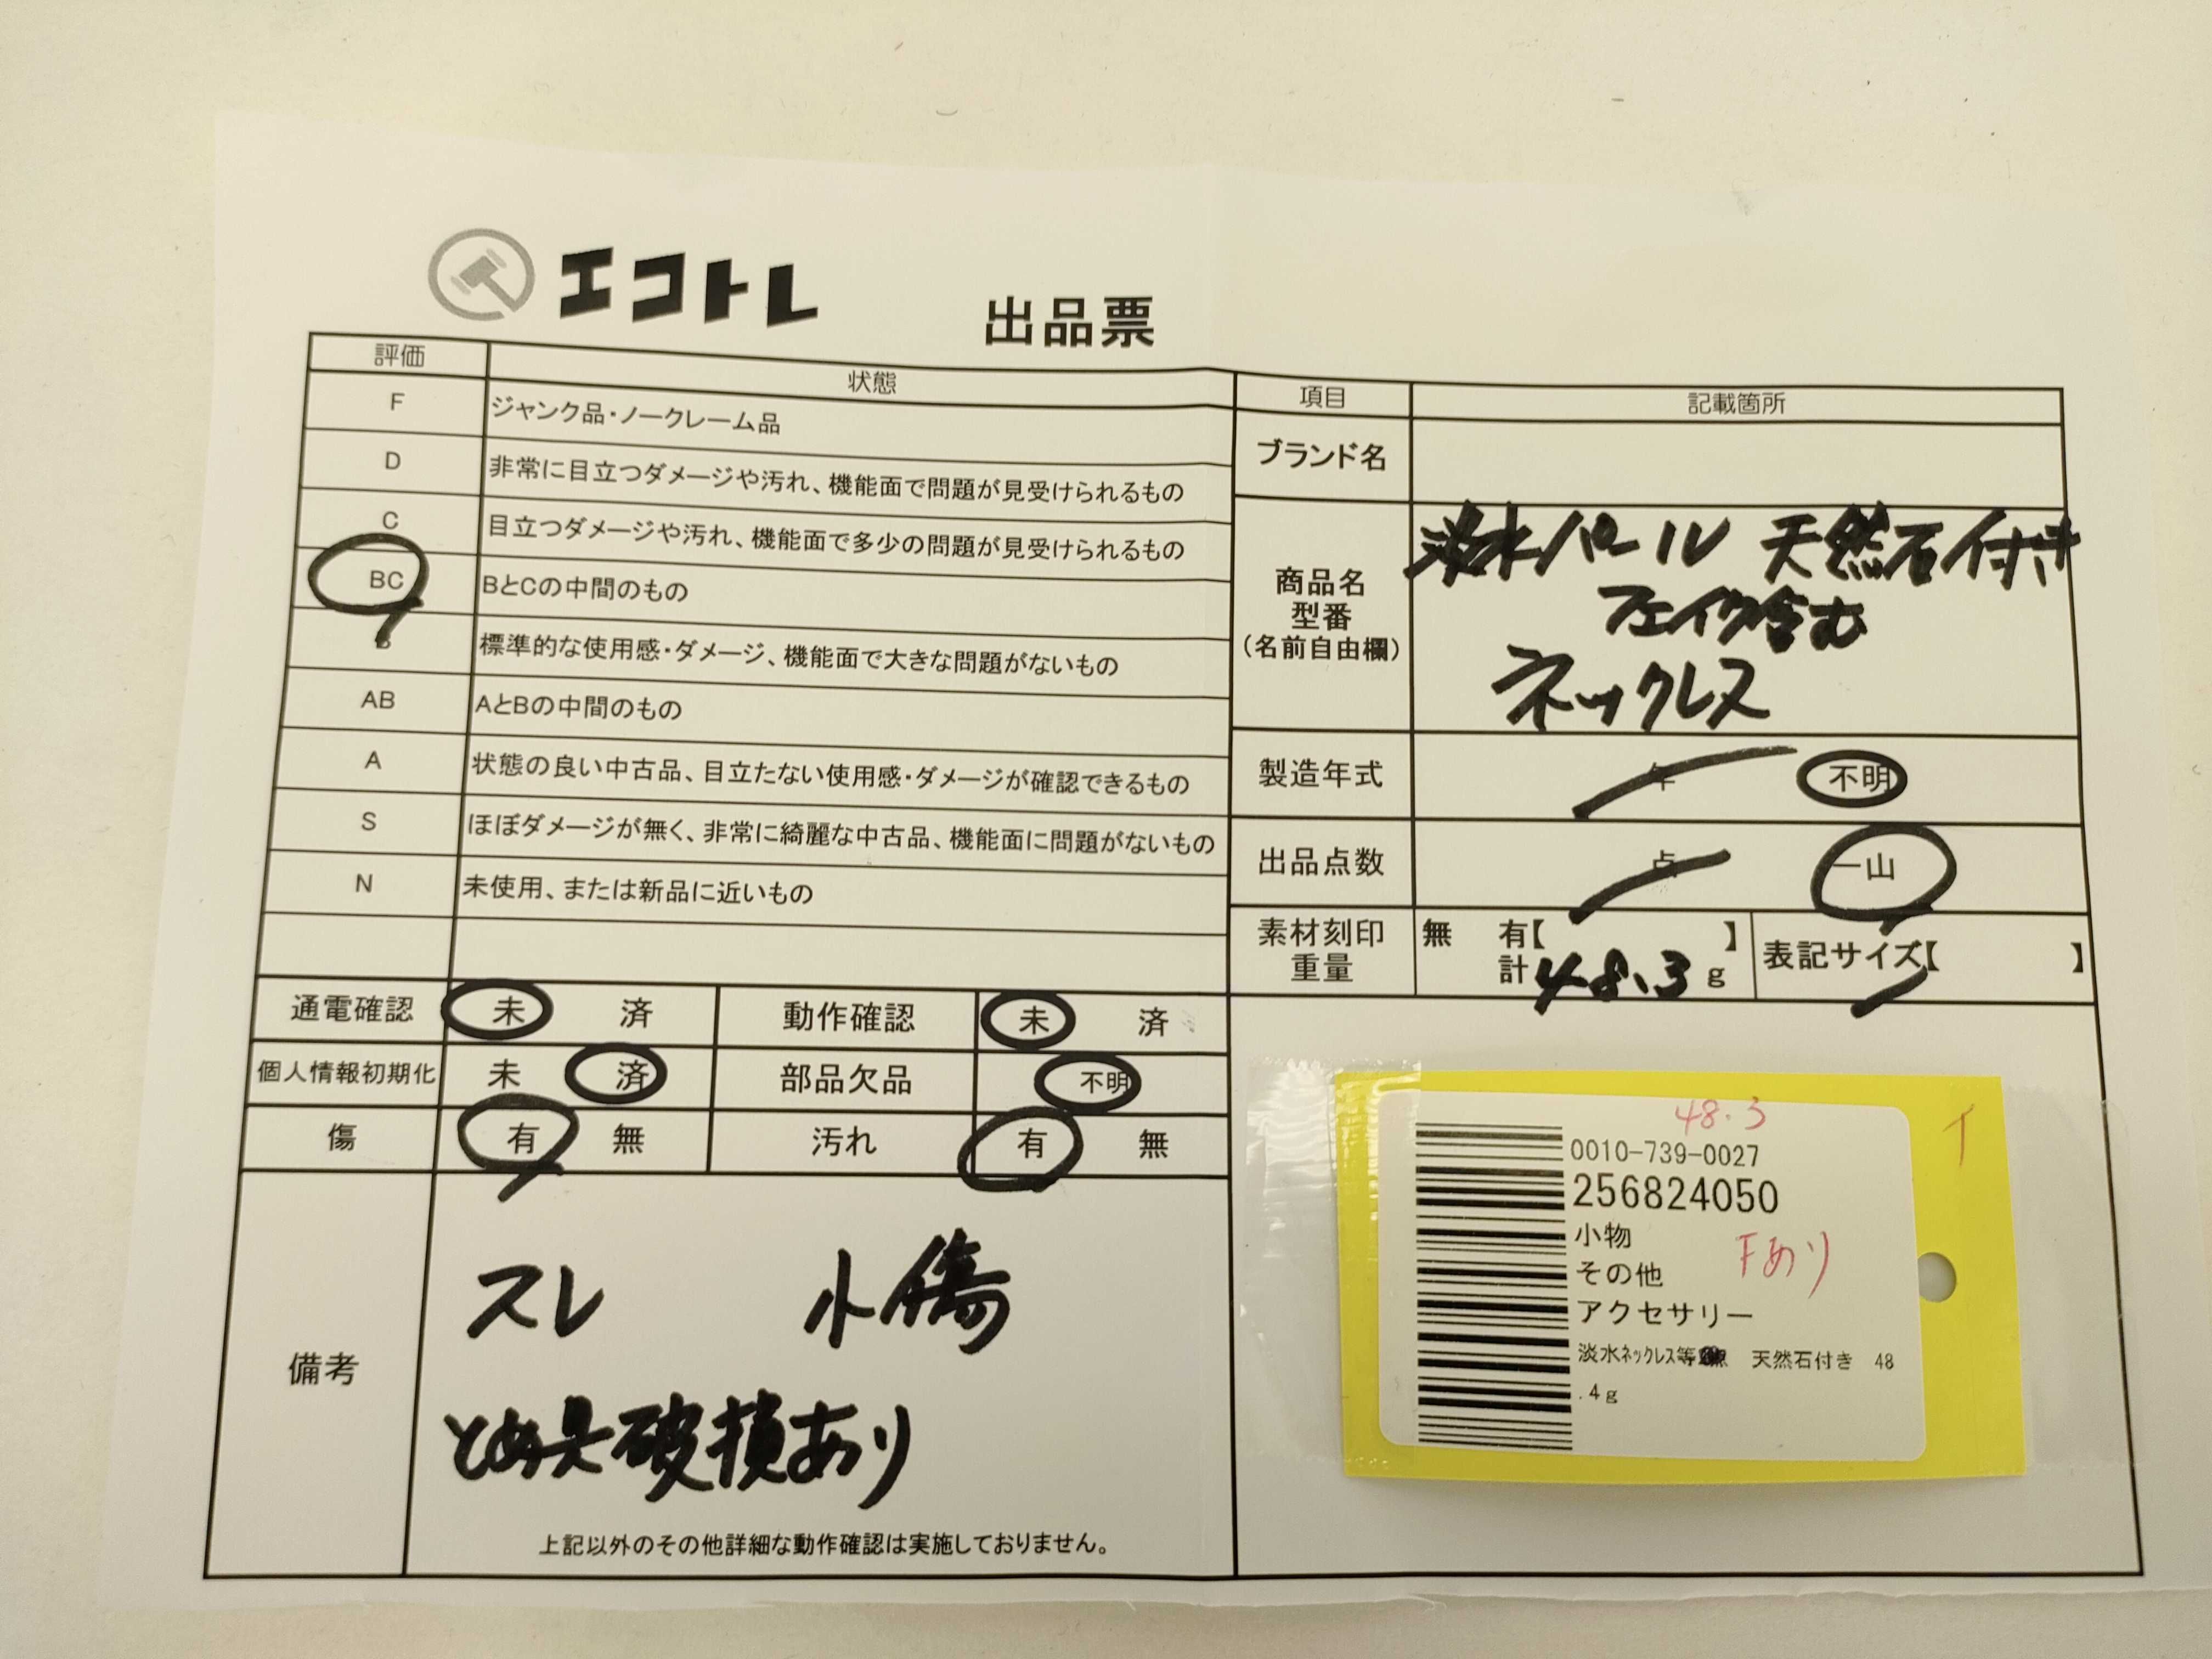 エコトレ
出品票
評価 状態
F ジャンク品・ノークレーム品
D 非常に目立つダメージや汚れ、機能面で問題が見受けられるもの
C 目立つダメージや汚れ、機能面で多少の問題が見受けられるもの
BC BとCの中間のもの
B 標準的な使用感・ダメージ、機能面で大きな問題がないもの
AB AとBの中間のもの
A 状態の良い中古品、目立たない使用感・ダメージが確認できるもの
S ほぼダメージが無く、非常に綺麗な中古品、機能面に問題がないもの
N 未使用、または新品に近いもの
通電確認 未 済 動作確認 未 済
個人情報初期化 未 済 部品欠品 不明
傷 有 無 汚れ 有 無
備考
スレ 小傷
とめ具破損あり
上記以外のその他詳細な動作確認は実施しておりません。
項目 記載箇所
ブランド名
商品名
型番
(名前自由欄)
淡水パール 天然石付き
フェイク含む
ネックレス
製造年式 年 不明
出品点数 点 一山
素材刻印
重量
無 有【 】
計 48.3 g
表記サイズ【 】
48.3
イ
0010-739-0027
256824050
小物
その他
Fあり
アクセサリー
淡水ネックレス等 天然石付き 48
.4g